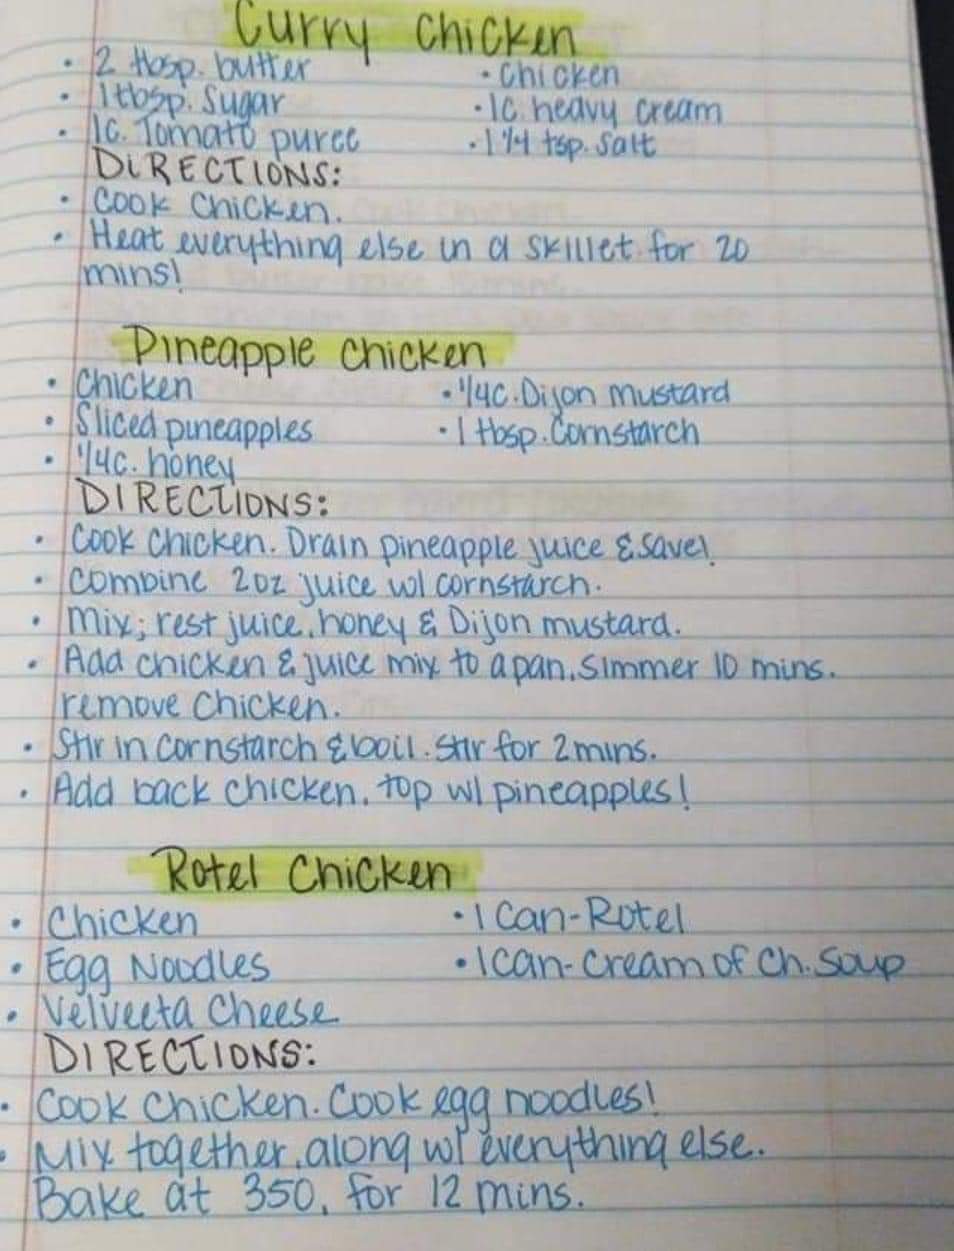 Curry Chicken
• 2 tbsp. butter • Chicken
• 1 tbsp. Sugar • 1c. heavy cream
• 1c. Tomato puree • 1 1/4 tsp. Salt
DIRECTIONS:
• Cook Chicken.
• Heat everything else in a skillet for 20
mins!
Pineapple Chicken
• Chicken • 1/4c. Dijon mustard
• Sliced pineapples • 1 tbsp. Cornstarch
• 1/4c. honey
DIRECTIONS:
• Cook Chicken. Drain pineapple juice & save!
• Combine 2oz juice w/ cornstarch.
• Mix; rest juice, honey & Dijon mustard.
• Add chicken & juice mix to a pan. Simmer 10 mins.
remove chicken.
• Stir in cornstarch & boil. Stir for 2 mins.
• Add back chicken, top w/ pineapples!
Rotel Chicken
• Chicken • 1 Can-Rotel
• Egg Noodles • 1 Can-Cream of Ch. Soup
• Velveeta Cheese
DIRECTIONS:
• Cook Chicken. Cook egg noodles!
• Mix together, along w/ everything else.
Bake at 350, for 12 mins.